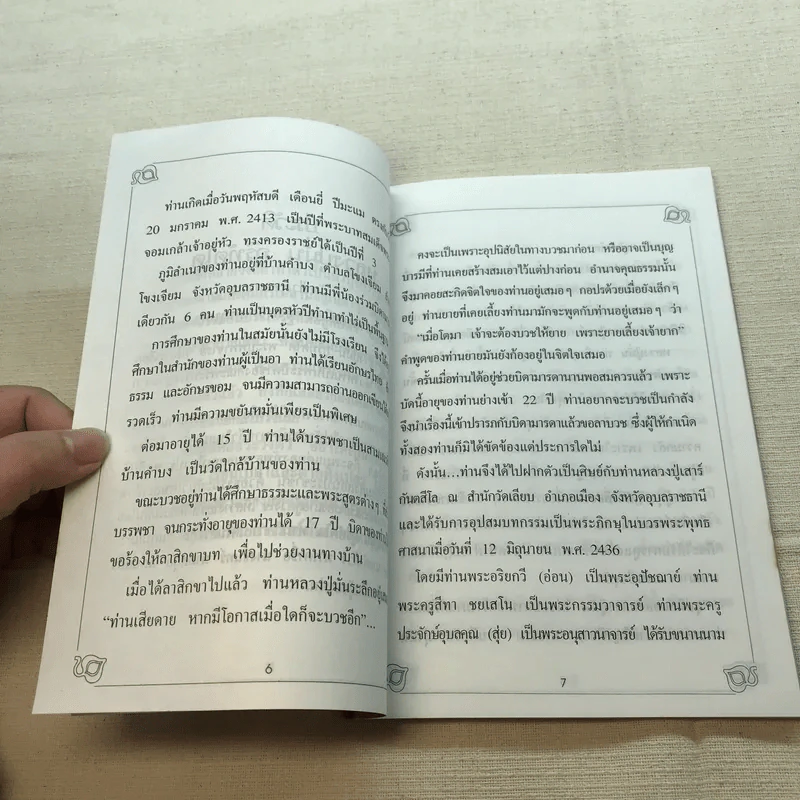 ท่านเกิดเมื่อวันพฤหัสบดี เดือนยี่ ปีมะแม
20 มกราคม พ.ศ. 2413 เป็นปีที่พระบาทสมเด็จ
จอมเกล้าเจ้าอยู่หัว ทรงครองราชย์ได้เป็นปีที่ 3
ภูมิลำเนาของท่านอยู่ที่บ้านคำบง ตำบลโขงเจียม
โขงเจียม จังหวัดอุบลราชธานี ท่านมีพี่น้องร่วมบิดา
เดียวกัน 6 คน ท่านเป็นบุตรหัวปีทำนาทำไร่เป็นพื้น
การศึกษาของท่านในสมัยนั้นยังไม่มีโรงเรียน
ศึกษาในสำนักของท่านผู้เป็นอา ท่านได้เรียนอักษรไทย
ธรรม และอักษรขอม จนมีความสามารถอ่านออกเขียนได้
รวดเร็ว ท่านมีความขยันหมั่นเพียรเป็นพิเศษ
ต่อมาอายุได้ 15 ปี ท่านได้บรรพชาเป็นสาม
บ้านคำบง เป็นวัดใกล้บ้านของท่าน
ขณะบวชอยู่ท่านได้ศึกษาธรรมะและพระสูตรต่างๆ
บรรพชา จนกระทั่งอายุของท่านได้ 17 ปี บิดาของท่าน
ขอร้องให้ลาสิกขาบท เพื่อไปช่วยงานทางบ้าน
เมื่อได้ลาสิกขาไปแล้ว ท่านหลวงปู่มั่นระลึกอยู่
“ท่านเสียดาย หากมีโอกาสเมื่อใดก็จะบวชอีก”...
6
คงจะเป็นเพราะอุปนิสัยในทางบวชมาก่อน หรืออาจเป็นบุญ
บารมีที่ท่านเคยสร้างสมเอาไว้แต่ปางก่อน อำนาจคุณธรรมนั้น
จึงมาคอยสะกิดจิตใจของท่านอยู่เสมอๆ กอปรด้วยเมื่อยังเล็กๆ
อยู่ ท่านยายที่เคยเลี้ยงท่านมามักจะพูดกับท่านอยู่เสมอๆ ว่า
“เมื่อโตมา เจ้าจะต้องบวชให้ยาย เพราะยายเลี้ยงเจ้ายาก”
คำพูดของท่านยายมันยังก้องอยู่ในจิตใจเสมอ
ครั้นเมื่อท่านได้อยู่ช่วยบิดามารดานานพอสมควรแล้ว เพราะ
บัดนี้อายุของท่านย่างเข้า 22 ปี ท่านอยากจะบวชเป็นกำลัง
จึงนำเรื่องนี้เข้าปรารภกับบิดามารดาแล้วขอลาบวช ซึ่งผู้ให้กำเนิด
ทั้งสองท่านก็มิได้ขัดข้องแต่ประการใดไม่
ดังนั้น...ท่านจึงได้ไปฝากตัวเป็นศิษย์กับท่านหลวงปู่เสาร์
กันตสีโล ณ สำนักวัดเลียบ อำเภอเมือง จังหวัดอุบลราชธานี
และได้รับการอุปสมบทกรรมเป็นพระภิกษุในบวรพระพุทธ
ศาสนาเมื่อวันที่ 12 มิถุนายน พ.ศ. 2436
โดยมีท่านพระอริยกวี (อ่อน) เป็นพระอุปัชฌาย์ ท่าน
พระครูสีทา ชยเสโน เป็นพระกรรมวาจารย์ ท่านพระครู
ประจักษ์อุบลคุณ (สุ่ย) เป็นพระอนุสาวนาจารย์ ได้รับขนานนาม
7